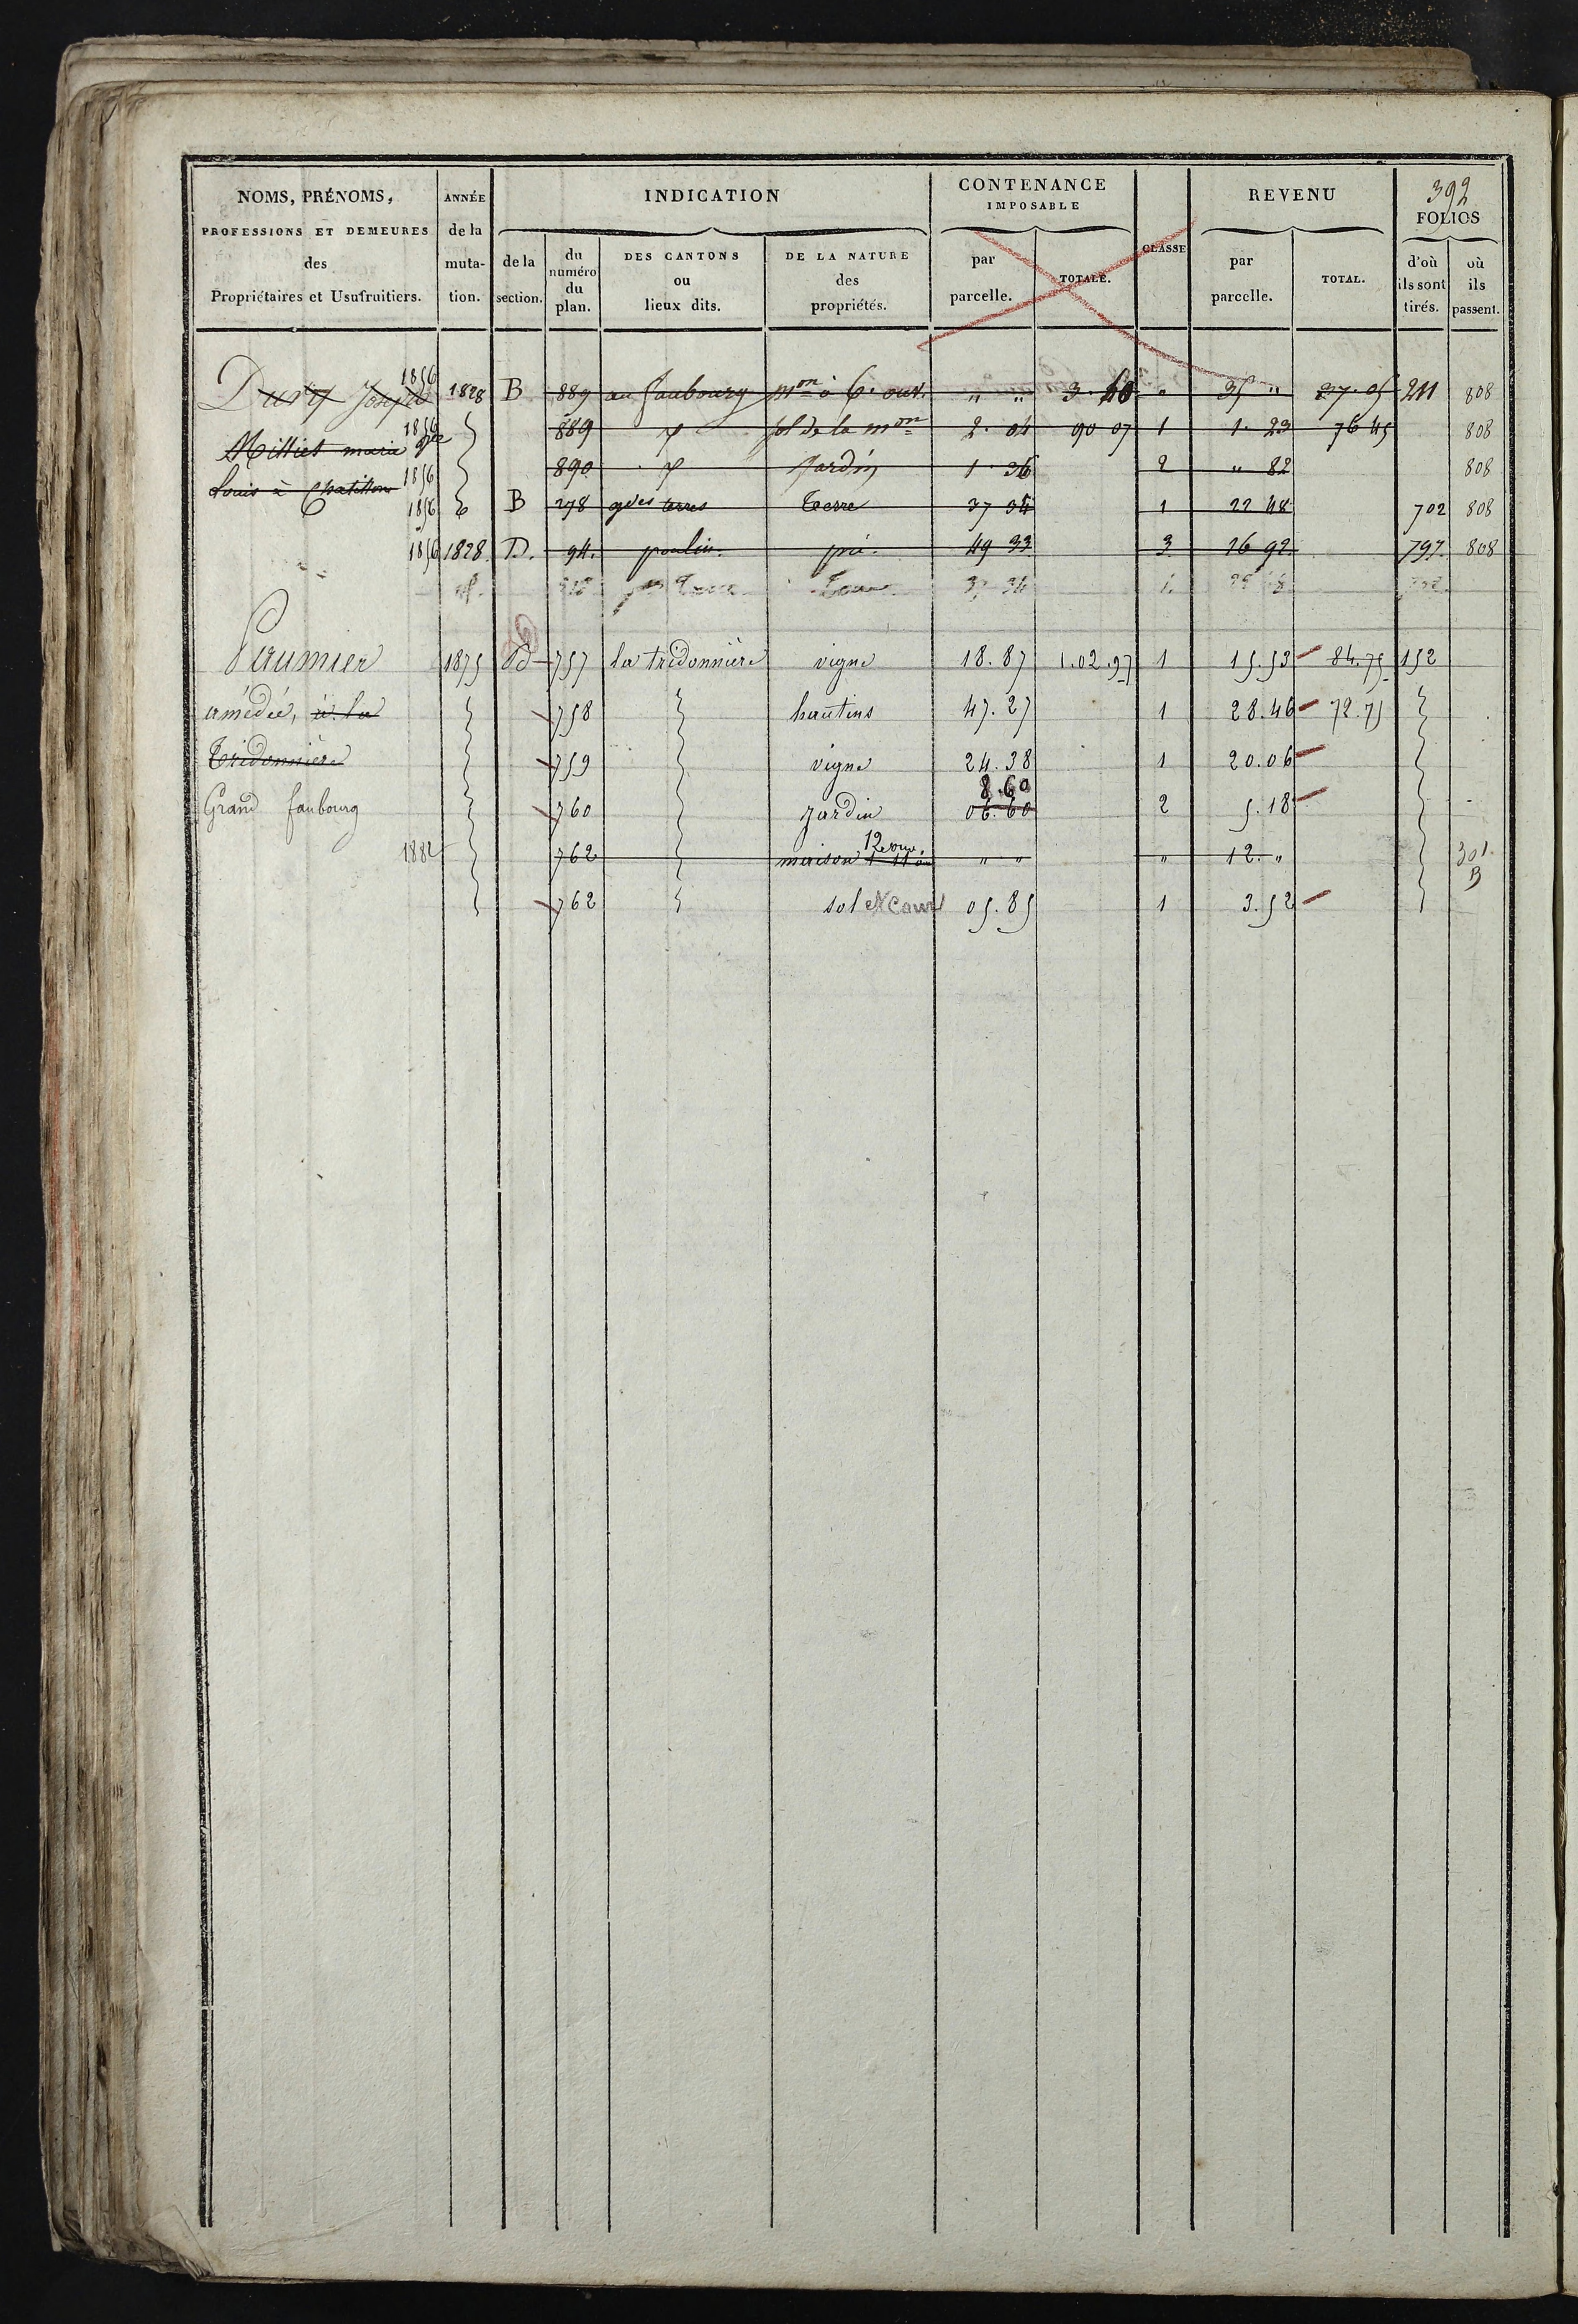 392
NOMS, PRÉNOMS, PROFESSIONS ET DEMEURES des Propriétaires et Usufruitiers.
ANNÉE de la muta- tion.
INDICATION
de la section.
du numéro du plan.
DES CANTONS ou lieux dits.
DE LA NATURE des propriétés.
CONTENANCE IMPOSABLE
par parcelle.
TOTALE.
CLASSE
REVENU
par parcelle.
TOTAL.
FOLIOS
d'où ils sont tirés.
où ils passent.
Dury Joseph 1856 1828 B 889 au faubourg mon à 6. ouv. " " 3. 40 " 35 " 37. 05 211 808
Milliet marie 1856 889 sol de la mon 2. 04 90 07 1 1. 23 76 45 808
Louis à Chatillon 1856 890 Jardin 1 36 2 " 82 808
1856 B 278 gdes terres terre 37 34 1 22 48 702 808
1856 1828 D. 94. poulin. pré. 49 33 3 16 92 797. 808
Paumier 1875 757 la tridonnière vigne 18. 87 1. 02. 97 1 15. 53 84. 75 152
amédée, à la 758 hautins 47. 27 1 28. 46 72. 75
Tridonnière 759 vigne 24. 38 1 20. 06
8. 60
Grand faubourg 760 jardin 06. 60 2 5. 18
1882 762 maison 12 ouv. " " " 12. " 301 B
762 sol et cour 05. 85 1 3. 52